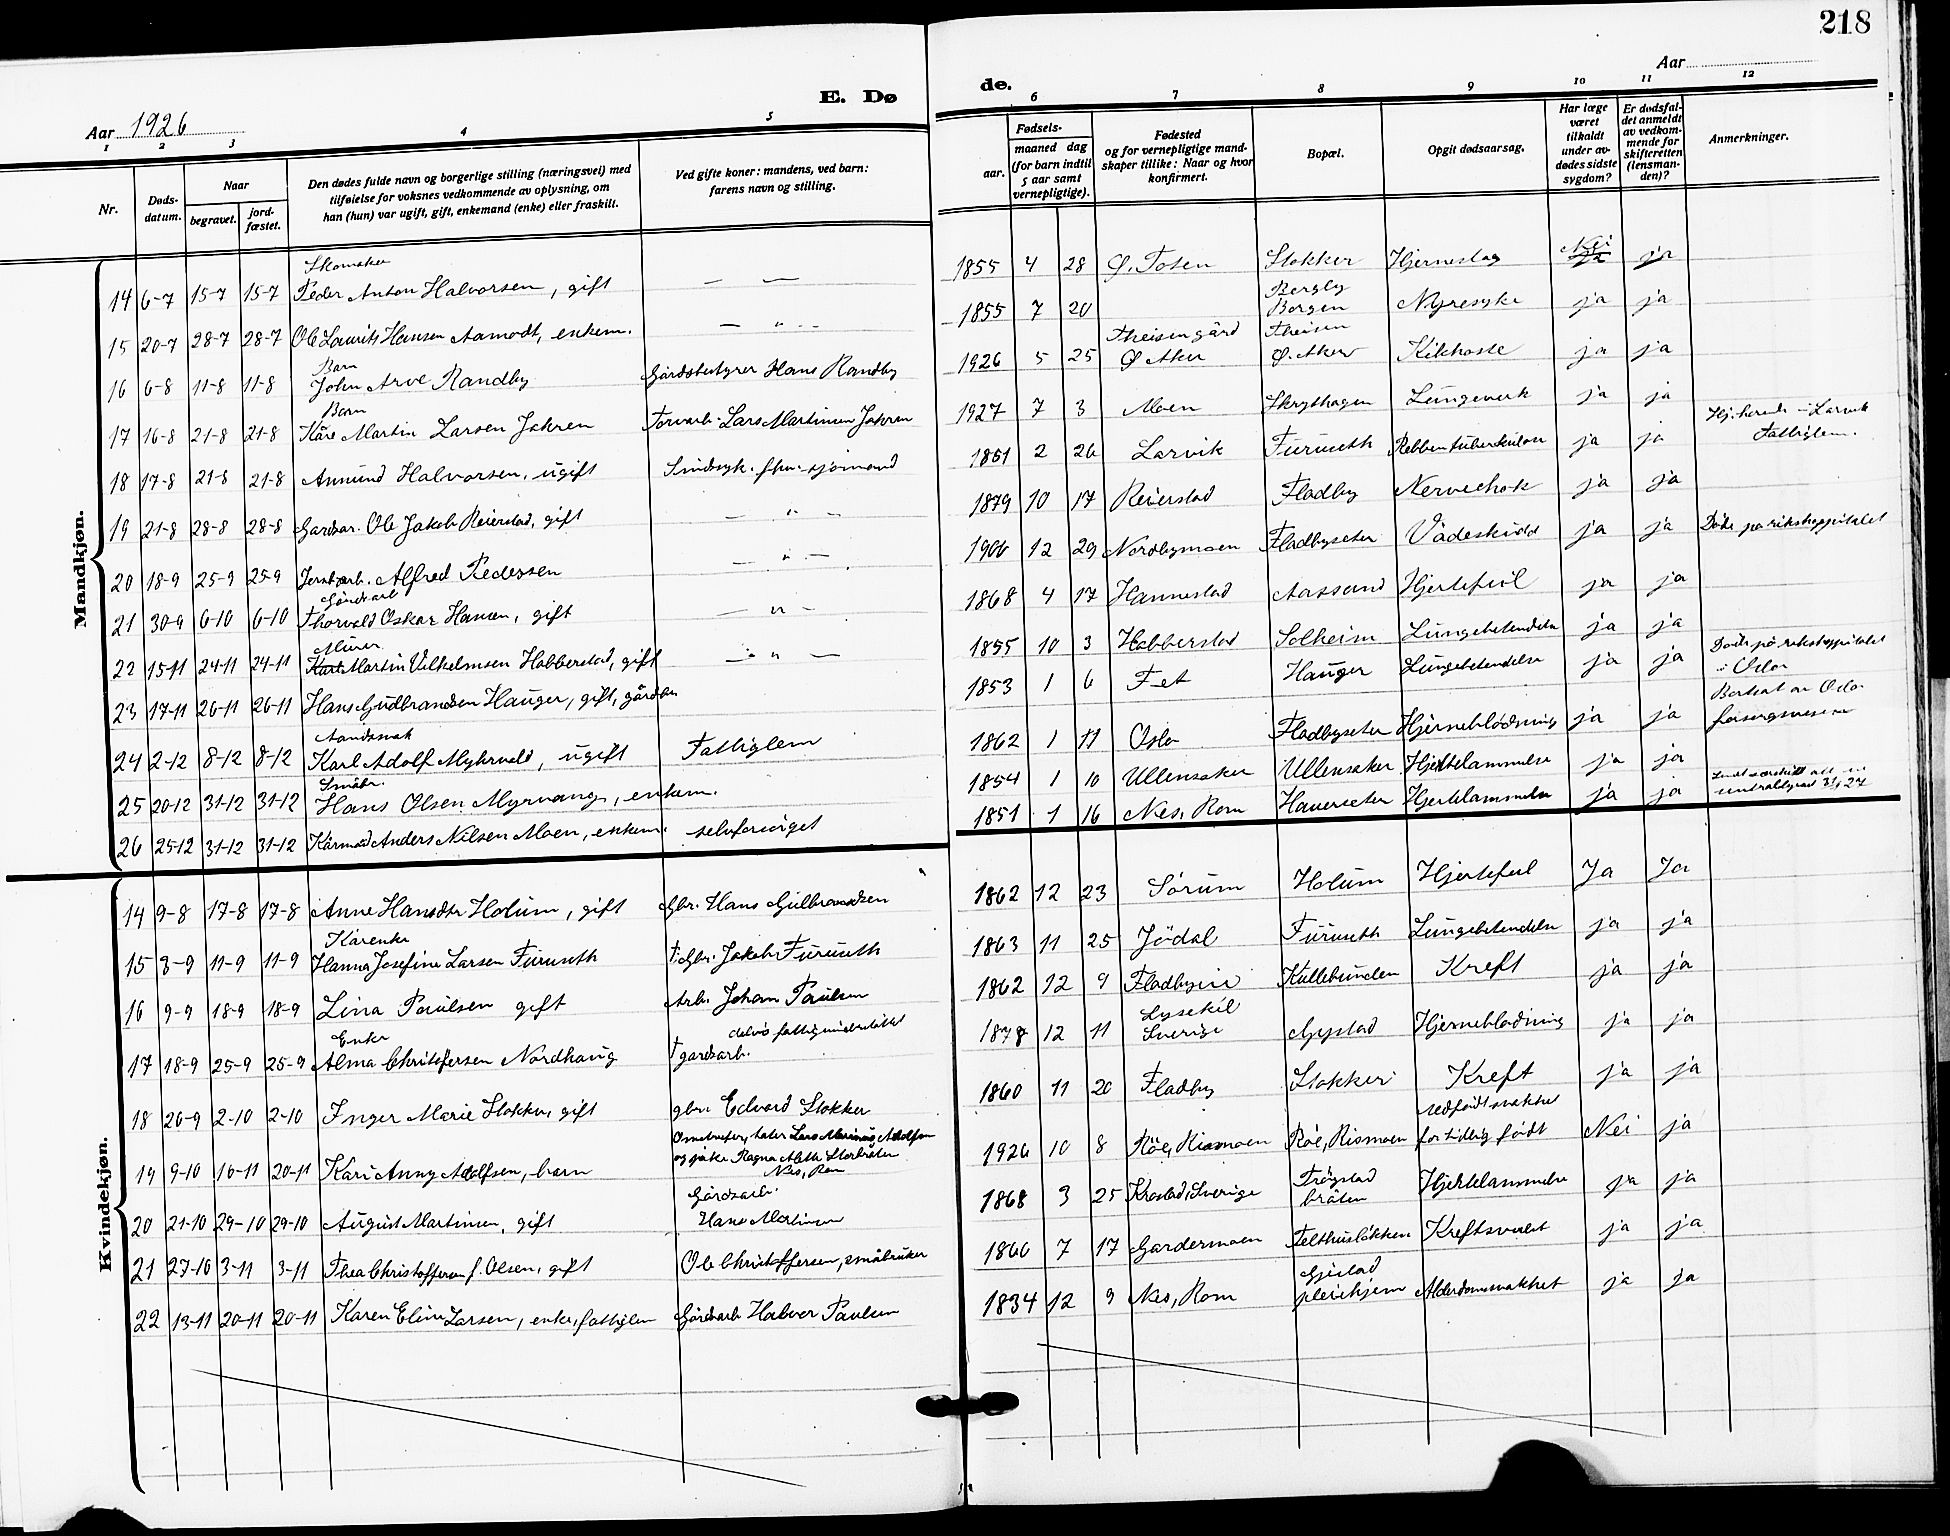 218
Aar 1926
E. Dø
de.
Aar
1 2 3 4 5 6 7 8 9 10 11 12
Nr.
Døds-
datum.
Naar
begravet.
jord-
fæstet.
Den dødes fulde navn og borgerlige stilling (næringsvei) med
tilføielse for voksnes vedkommende av oplysning, om
han (hun) var ugift, gift, enkemand (enke) eller fraskilt.
Ved gifte koner: mandens, ved barn:
farens navn og stilling.
Fødsels-
aar.
maaned dag
(for barn indtil
5 aar samt
vernepligtige).
Fødested
og for vernepligtige mand-
skaper tillike: Naar og hvor
konfirmert.
Bopæl.
Opgit dødsaarsag.
Har læge
været
tilkaldt
under av-
dødes sidste
sygdom?
Er dødsfal-
det anmeldt
av vedkom-
mende for
skifteretten
(lensman-
den)?
Anmerkninger.
Mandkjøn.
Skomaker
14 6-7 15-7 15-7 Peder Anton Halvorsen, gift — — 1855 4 28 Ø. Toten Stokker Hjerneslag Nei ja
15 20-7 28-7 28-7 Ole Laurits Hansen Aamodt, enkem. — " — 1855 7 20 Bergby Borgen Nyresyke ja ja
Barn
16 6-8 11-8 11-8 John Arve Randby Gårdsbestyrer Hans Randby 1926 5 25 Theisengård Ø Aker Theisen Ø. Aker Kikhoste ja ja
Barn
17 16-8 21-8 21-8 Kåre Martin Larsen Jahren Torvarb. Lars Martinsen Jahren 1927 7 3 Moen Skrythagen Lungeverk ja ja
18 17-8 21-8 21-8 Amund Halvorsen, ugift Sindsyk. fhv. sjømand 1851 2 26 Larvik Furuseth Ribbentuberkulose ja ja Hj.hørende i Larvik
Fattiglem.
19 21-8 28-8 28-8 Gardbr. Ole Jakob Reierstad, gift — " — 1879 10 17 Reierstad Fladby Nervechok ja ja
20 18-9 25-9 25-9 Jernbarb. Alfred Pedersen — " — 1906 12 29 Nordbymoen Fladbyseter Vådeskudd ja ja Døde på rikshospitalet
Gårdsarb
21 30-9 6-10 6-10 Thorvald Oskar Hansen, gift — " — 1868 4 17 Hannestad Aassand Hjertefeil ja ja
Murer
22 15-11 24-11 24-11 Karl Martin Vilhelmsen Habberstad, gift — " — 1855 10 3 Habberstad Solheim Lungebetendelse ja ja
23 17-11 26-11 26-11 Hans Gudbrandsen Hauger, gift, gårdbr 1853 1 6 Fet Hauger Lungebetendelse ja ja Døde på rikshospitalet
i Oslo
Aandssvak
24 2-12 8-12 8-12 Karl Adolf Myhrvold, ugift Fattiglem 1862 1 11 Oslo Fladbyseter Hjerneblødning ja ja Bortsat av Oslo
forsorgsvesen
Småbr.
25 20-12 31-12 31-12 Hans Olsen Myrvang, enkem. 1854 1 10 Ullensaker Ullensaker Hjertelammelse ja ja
26 25-12 31-12 31-12 Kårmand Anders Nilsen Moen, enkem. selvforsørget 1851 1 16 Nes, Rom Haverseter Hjertelammelse ja ja
Kvindekjøn.
14 9-8 17-8 17-8 Anne Hansdtr Holum, gift Gbr. Hans Gulbrandsen 1862 12 23 Sørum Holum Hjertefeil Ja Ja
Kårenke
15 3-9 11-9 11-9 Hanna Josefine Larsen Furuseth † Gbr. Jakob Furuseth 1863 11 25 Jødal Furuseth Lungebetendelse ja ja
16 9-9 18-9 18-9 Lina Paulsen gift Arb. Johan Paulsen 1862 12 9 Fladbyeie Kullebunden Kreft ja ja
Enke
17 18-9 25-9 25-9 Alma Christoffersen Nordhaug delvis fattigunderstøttet
† gardsarb. 1878 12 11 Lysekil Sverige Gystad Hjerneblødning ja ja
18 26-9 2-10 2-10 Inger Marie Stokker, gift gbr. Edvard Stokker 1860 11 20 Fladby Stokker Kreft ja ja
19 9-10 16-11 20-11 Kari Anny Adolfsen, barn Omstreifer, tater Lars Marinus Adolfsen
og pike Ragna Aleth Storbråten
Nes, Rom 1926 10 8 Røe, Rismoen Røe, Rismoen Medfødt svakhet
for tidlig født Nei ja
20 21-10 29-10 29-10 August Martinsen, gift Gårdsarb.
Hans Martinsen 1868 3 25 Krostad, Sverige Trøgstad
bråten Hjertelammelse ja ja
21 27-10 3-11 3-11 Thea Christoffersen f. Olsen, gift Ole Christoffersen, småbruker 1866 7 17 Gardermoen Telthusløkken Kreftsvulst ja ja
22 13-11 20-11 20-11 Karen Eline Larsen, enke, fattiglem Gårdsarb Halvor Paulsen 1834 12 9 Nes, Rom Gjestad
pleiehjem Alderdomssvakhet ja ja